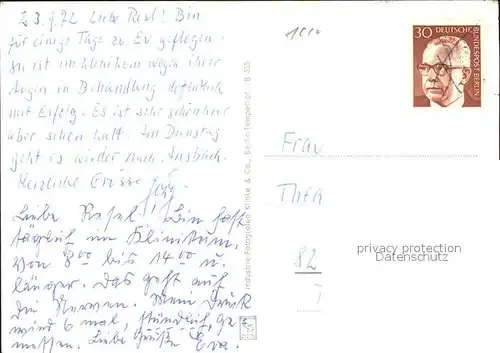 23.9.72 Liebe Resl! Bin
für einige Tage zu Ev geflogen.
Sie ist im Klinikum wegen ihrer
Augen in Behandlung hoffentlich
mit Erfolg. Es ist sehr schön hier
aber schon kalt. Am Dienstag
geht es wieder nach Ansbach.
Herzliche Grüsse
Liebe Resel! Bin fast
täglich im Klinikum.
Von 8.00 bis 14.00 u.
länger. Das geht auf
die Nerven. Mein Druck
wird 6 mal, stündlich, ge-
messen. Liebe Grüße Eva.
Industrie-Fotografen Klinke & Co., Berlin-Tempelhof B 535
30
DEUTSCHE
BUNDESPOST BERLIN
Frau
Ther
82
privacy protection
Datenschutz